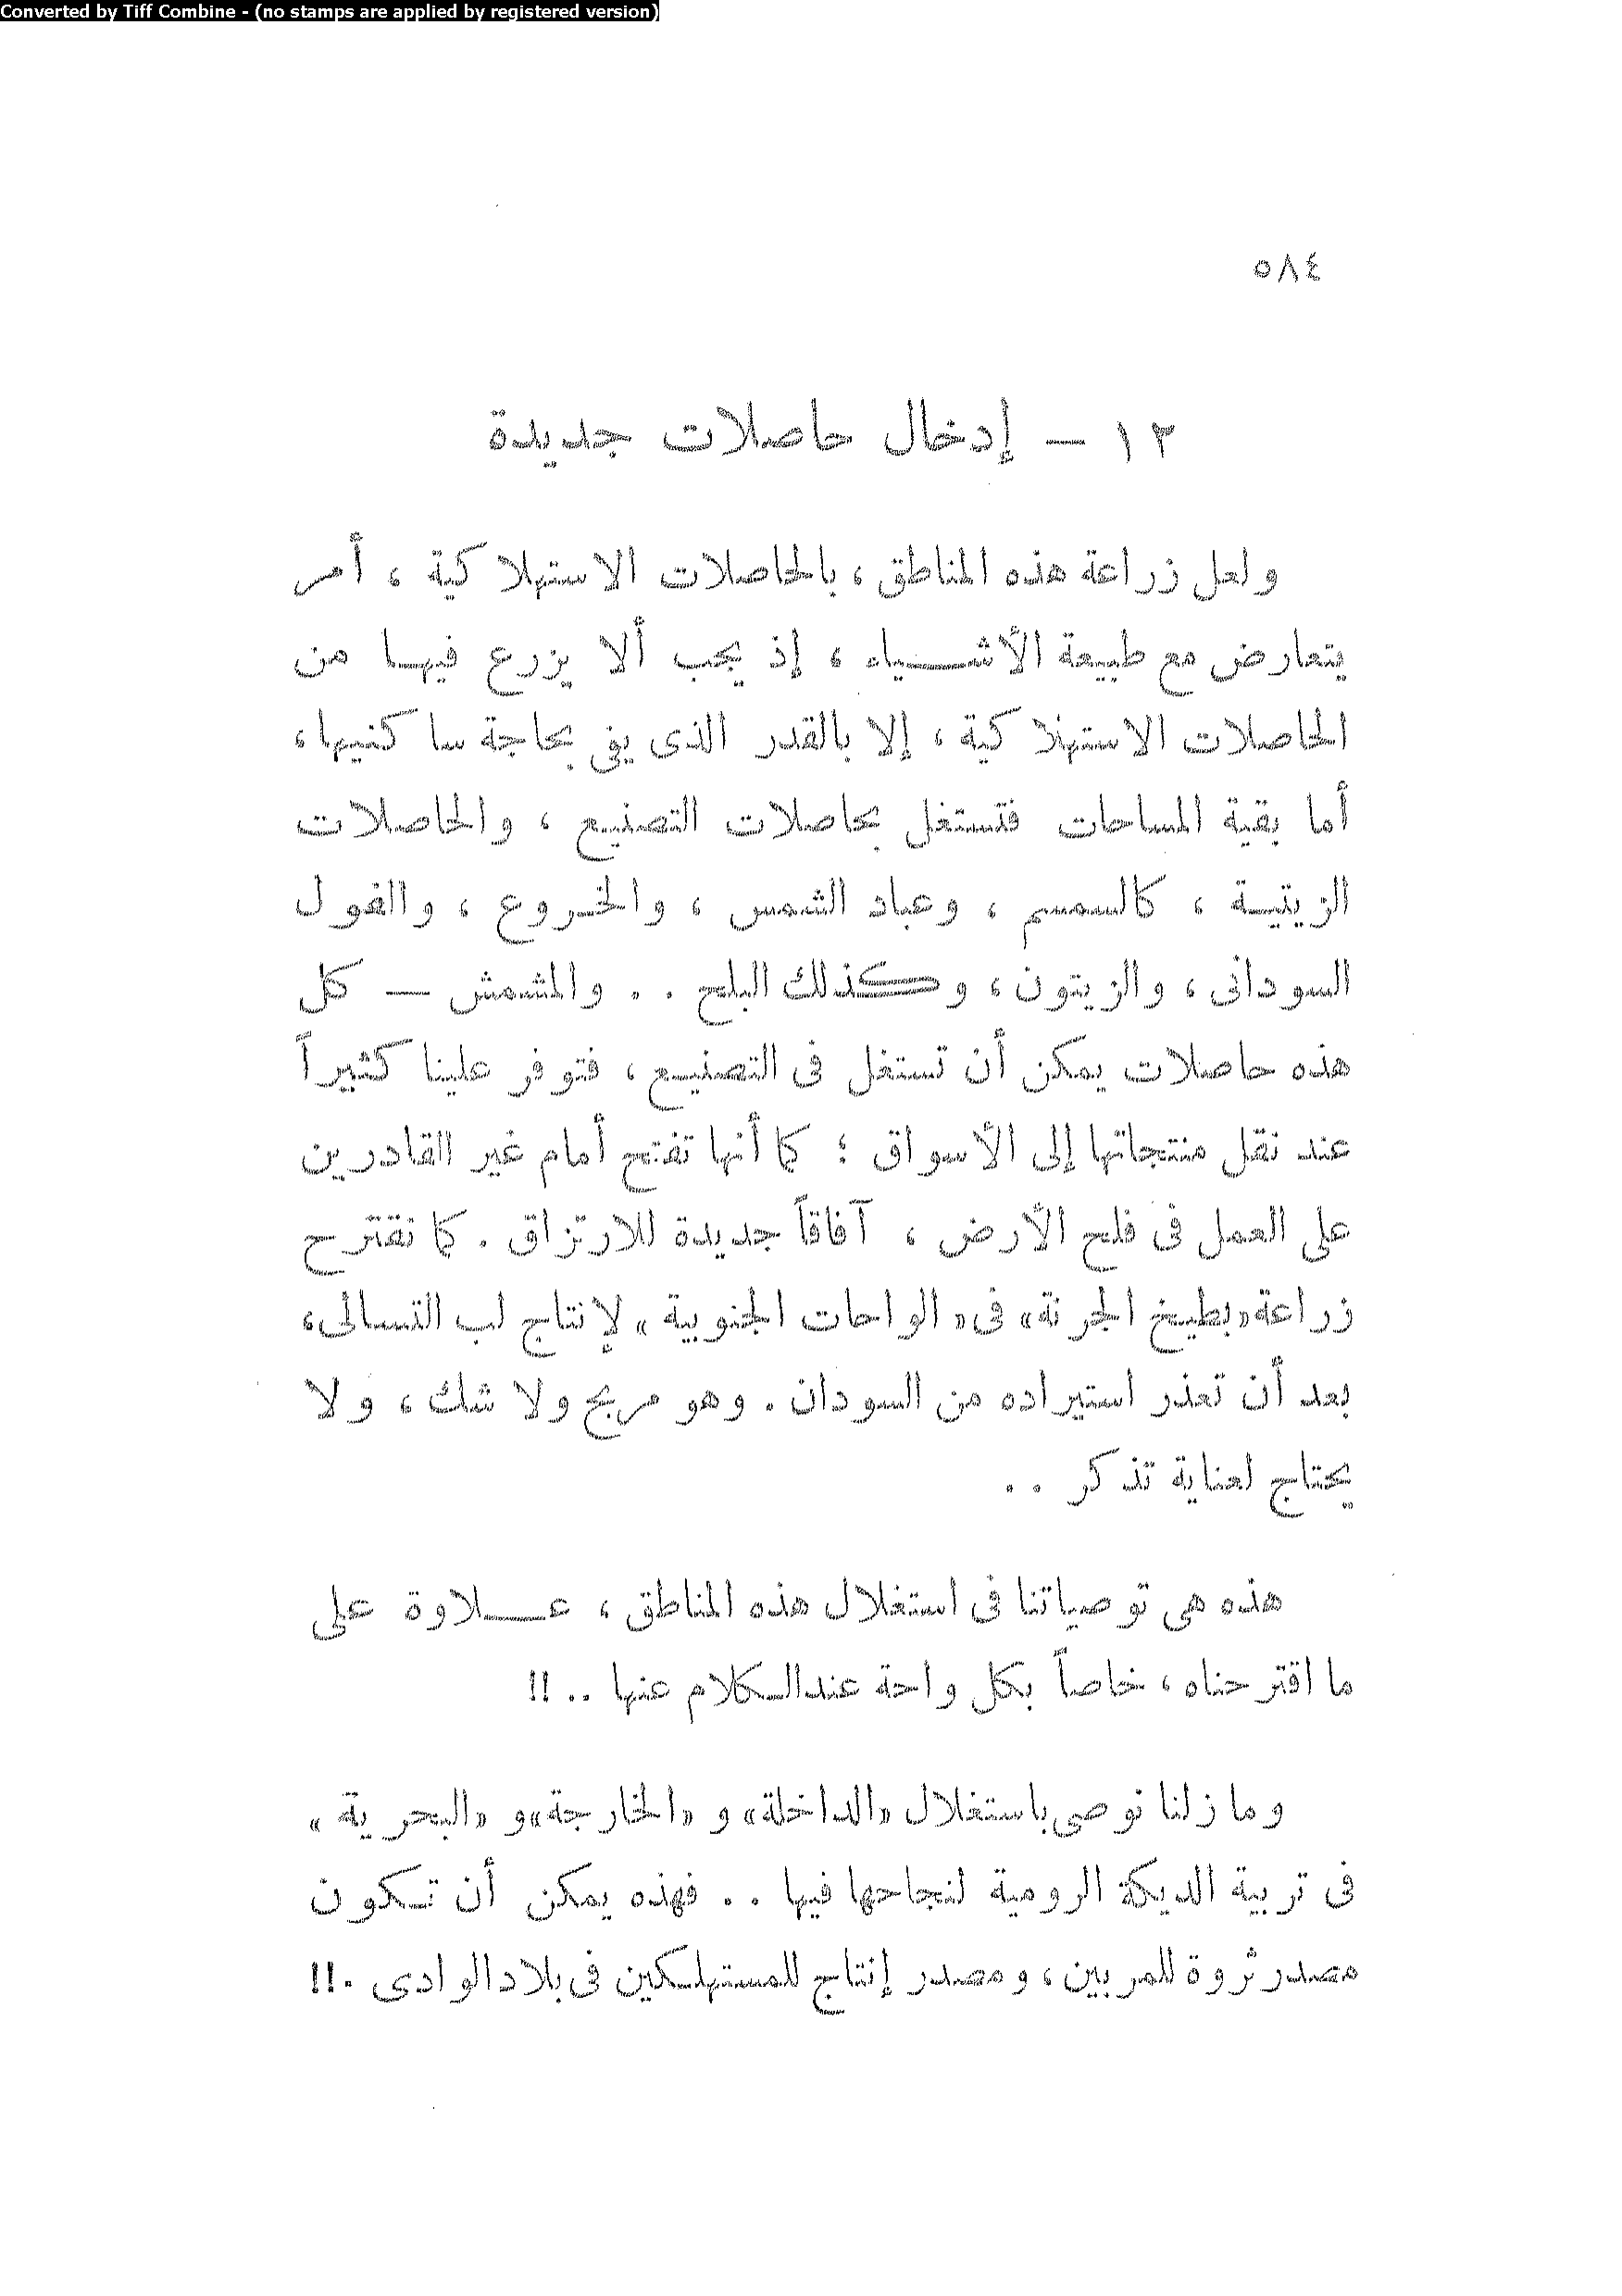 Converted by Tiff Combine - (no stamps are applied by registered version)
٥٨٤
١٢ — إدخال حاصلات جديدة
ولعل زراعة هذه المناطق ، بالحاصلات الاستهلاكية ، أمر
يتعارض مع طبيعة الأشـــياء ، إذ يجب ألا يزرع فيهـا من
الحاصلات الاستهلاكية ، إلا بالقدر الذى يفى بحاجة ساكنيها ،
أما بقية المساحات فتستغل بحاصلات التصنيـع ، والحاصلات
الزيتيـة ، كالسمسم ، وعباد الشمس ، والخـروع ، والفول
السودانى ، والزيتون ، وكذلك البلح . . والمشمش — كل
هذه حاصلات يمكن أن تستغل فى التصنيـع ، فتوفر علينا كثيراً
عند نقل منتجاتها إلى الأسواق ؛ كما أنها تفتح أمام غير القادرين
على العمل فى فلح الأرض ، آفاقاً جديدة للارتزاق . كما نقترح
زراعة «بطيخ الجرنة» فى « الواحات الجنوبية » لإنتاج لب التسالى ،
بعد أن تعذر استيراده من السودان . وهو مربح ولا شك ، ولا
يحتاج لعناية تذكر . .
هذه هى توصياتنا فى استغلال هذه المناطق ، عـــلاوة على
ما اقترحناه ، خاصاً بكل واحة عند الـكلام عنها . . !!
وما زلنا نوصى باستغلال «الداخلة» و «الخارجة» و «البحرية »
فى تربية الديكة الرومية لنجاحها فيها . . فهذه يمكن أن تـكون
مصدر ثروة للمربين ، ومصدر إنتاج للمستهلـكين فى بلاد الوادى . !!